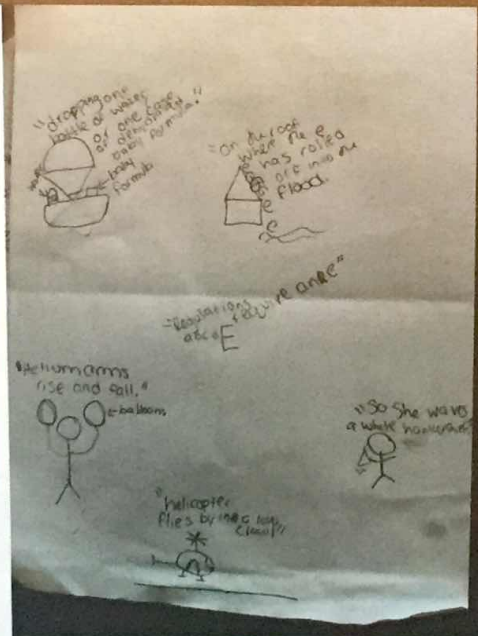 "dropping one
bottle of water
or one case
of dehydrated
baby formula."
water
baby
formula
"On the roof
where the e
has rolled
off into the
flood.
e
e
e
"Regulations require an e"
abcd E
"Helium arms
rise and fall."
balloons
"So she waves
a white handkerchief"
"helicopter
flies by like a low
cloud"